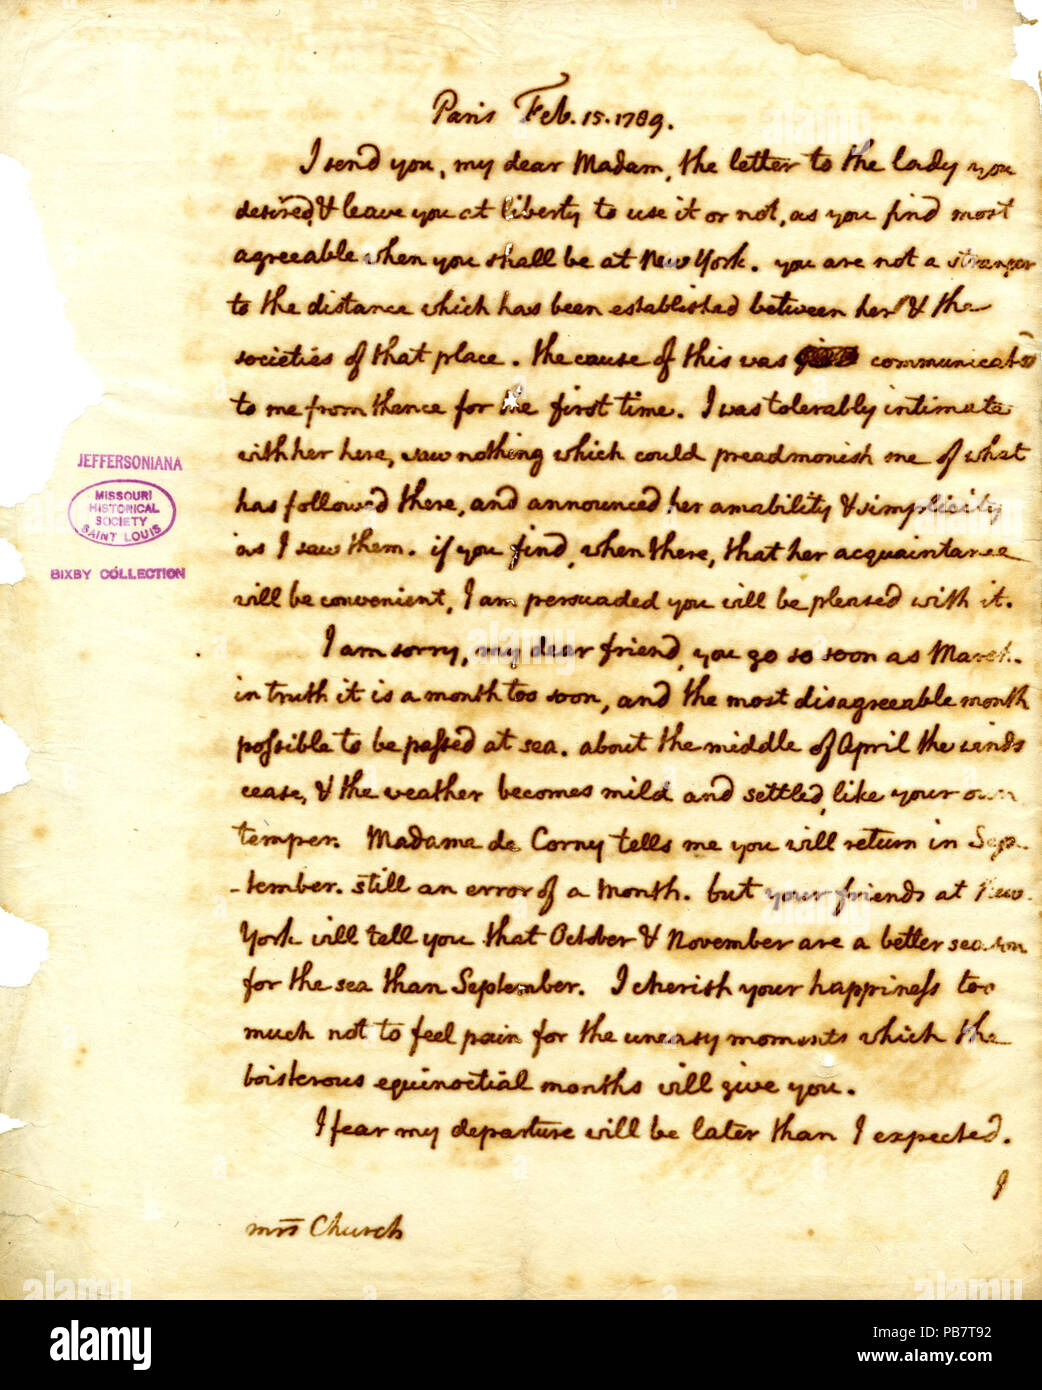 Paris Feb. 15. 1789.
I send you, my dear Madam, the letter to the lady you
desired, & leave you at liberty to use it or not, as you find most
agreeable when you shall be at New York. you are not a stranger
to the distance which has been established between her & the
societies of that place. the cause of this was communicated
to me from thence for the first time. I was tolerably intimate
with her here, saw nothing which could preadmonish me of what
has followed there, and announced her amability & simplicity
as I saw them. if you find, when there, that her acquaintance
will be convenient, I am persuaded you will be pleased with it.
I am sorry, my dear friend, you go so soon as March.
in truth it is a month too soon, and the most disagreeable month
possible to be passed at sea. about the middle of April the winds
cease, & the weather becomes mild and settled, like your own
temper. Madame de Corny tells me you will return in Sep-
-tember. still an error of a month. but your friends at New
York will tell you that October & November are a better season
for the sea than September. I cherish your happiness too
much not to feel pain for the uneasy moments which the
boisterous equinoctial months will give you.
I fear my departure will be later than I expected.
I
mrs Church
JEFFERSONIANA
MISSOURI
HISTORICAL
SOCIETY
SAINT LOUIS
BIXBY COLLECTION
alamy
PB7T92
www.alamy.com